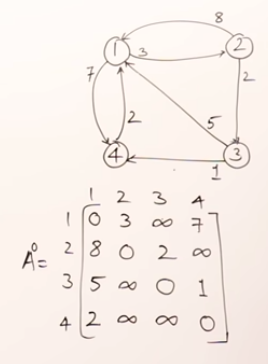 8
1 3 2
7 2
2 5
4 1 3
1 2 3 4
1 0 3 ∞ 7
A⁰= 2 8 0 2 ∞
3 5 ∞ 0 1
4 2 ∞ ∞ 0